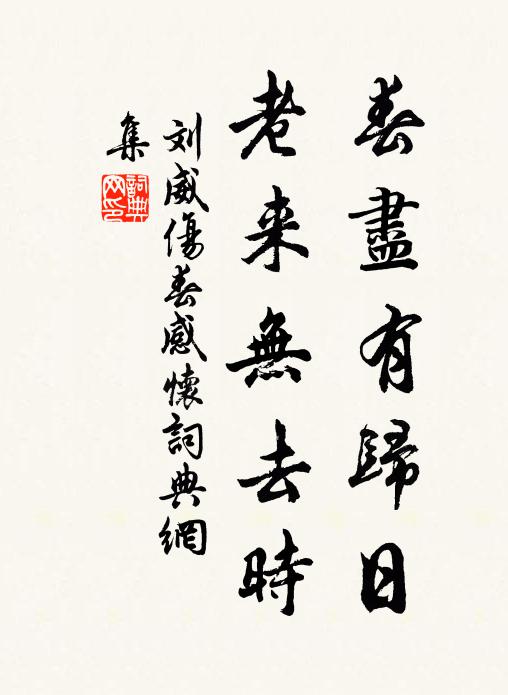 春盡有歸日
老来無去時
刘威傷春感懷詞典網
集
詞典
网印